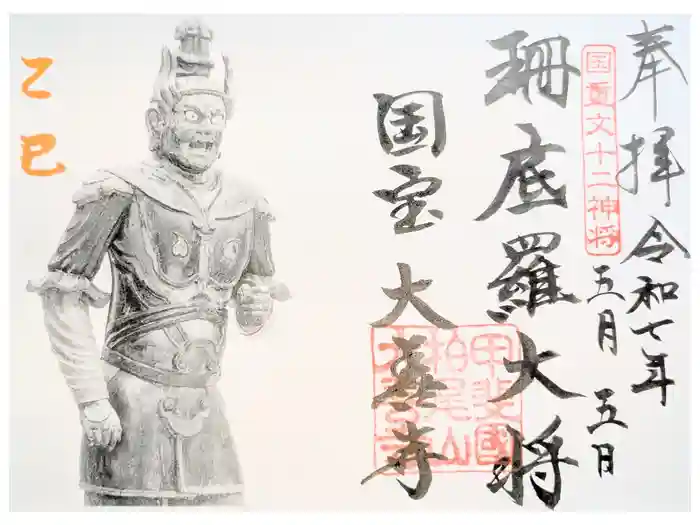 奉拝 令和七年
五月 五日
国重文十二神将
珊底羅大将
国宝 大善寺
甲斐國
柏尾山
大善寺
乙巳